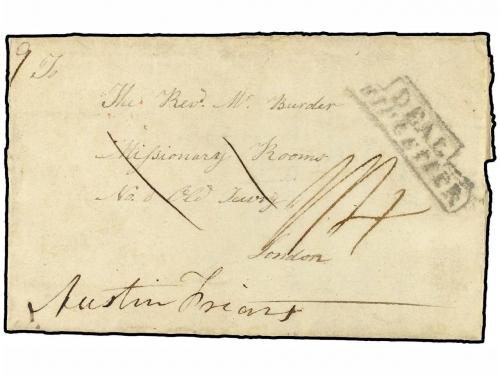 9 To
The Revd. Mr. Burder
Missionary Rooms
No. 8 Old Jewry
London
1/4
Austin Friars
DEAL
SHIP LETTER